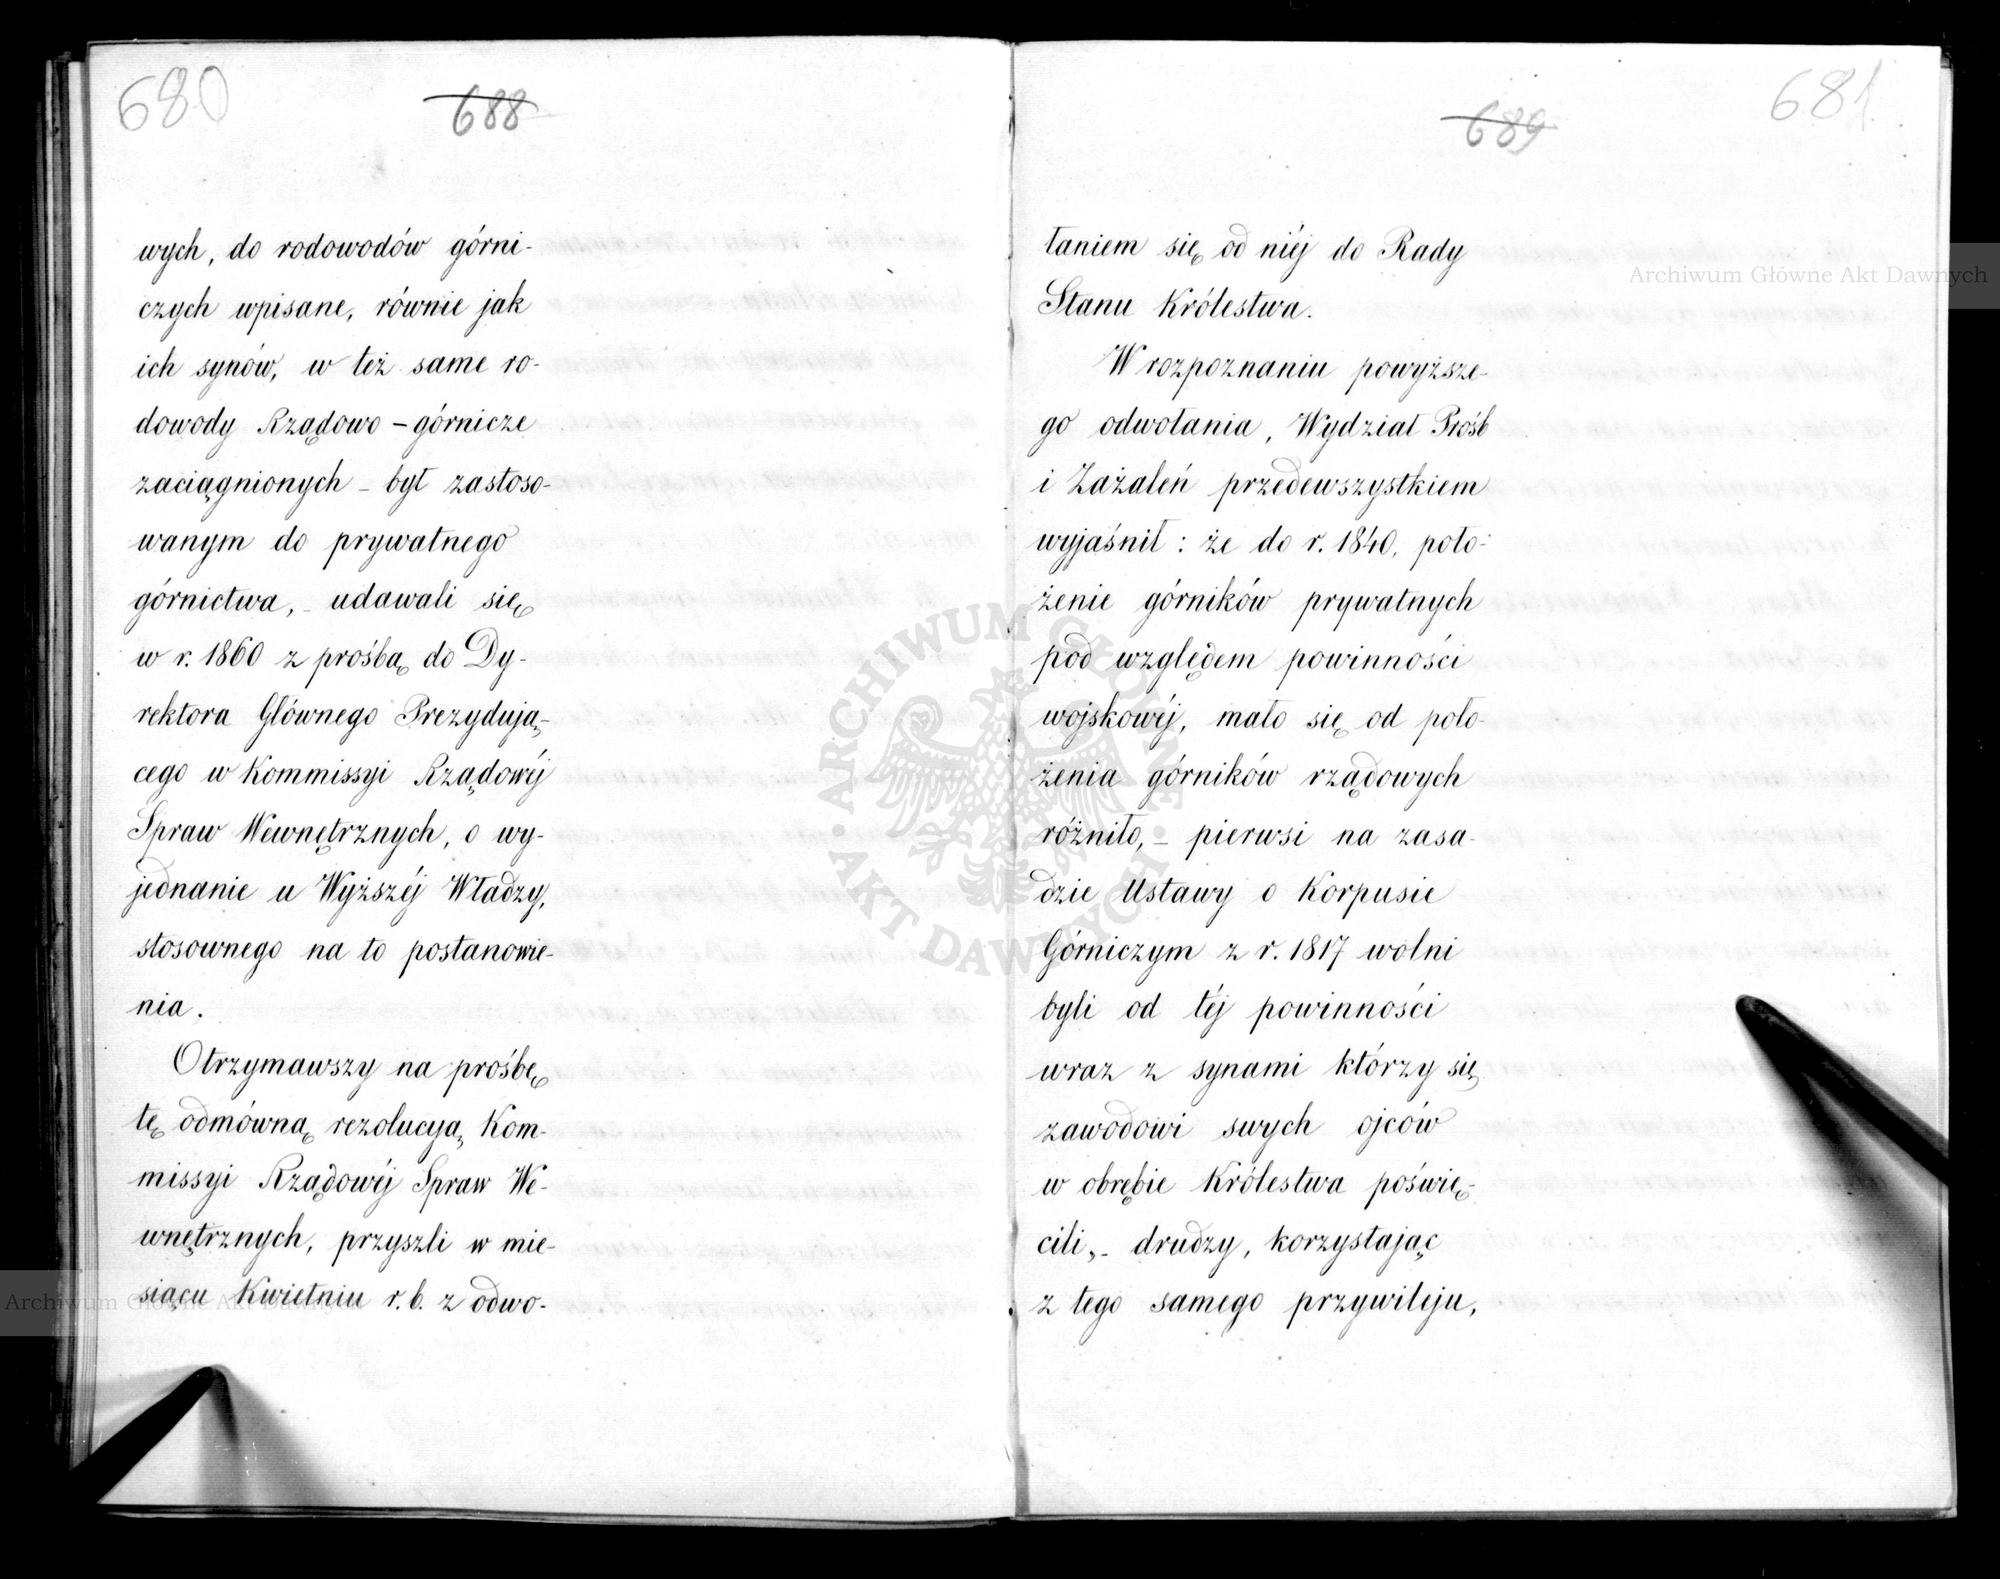 680
688
wych, do rodowodów górni-
czych wpisane, równie jak
ich synów, w też same ro-
dowody Rządowo – górnicze
zaciągnionych – był zastoso-
wanym do prywatnego
górnictwa, – udawali się
w r. 1860 z prośbą do Dy-
rektora Głównego Prezydują-
cego w Kommissyi Rządowéj
Spraw Wewnętrznych, o wy-
jednanie u Wyższéj Władzy,
stosownego na to postanowie-
nia.
Otrzymawszy na prośbę
tę odmówną rezolucyą Kom-
missyi Rządowéj Spraw We-
wnętrznych, przyszli w mie-
siącu Kwietniu r. b. z odwo-
681
689
łaniem się od niéj do Rady
Stanu Królestwa.
W rozpoznaniu powyższe-
go odwołania, Wydział Próśb
i Zażaleń przedewszystkiem
wyjaśnił: że do r. 1840, poło-
żenie górników prywatnych
pod względem powinności
wojskowéj, mało się od poło-
żenia górników rządowych
różniło, – pierwsi na zasa-
dzie Ustawy o Korpusie
Górniczym z r. 1817 wolni
byli od téj powinności
wraz z synami którzy się
zawodowi swych ojców
w obrębie Królestwa poświę-
cili, – drudzy, korzystając
z tego samego przywileju,
Archiwum Główne Akt Dawnych
Archiwum Główne Akt Dawnych
ARCHIWUM GŁÓWNE
AKT DAWNYCH